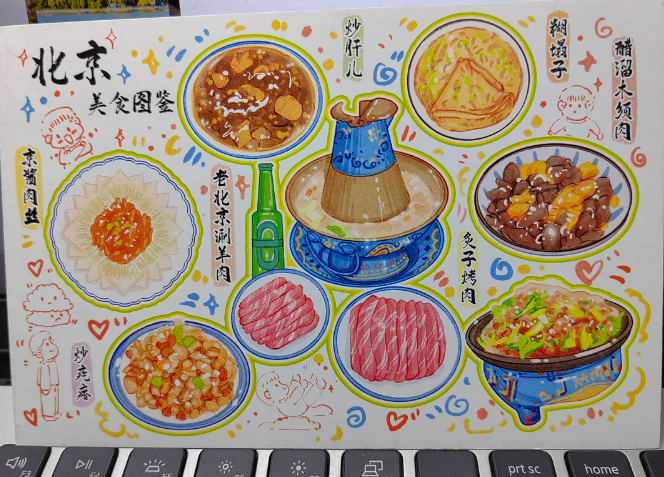 北京
美食图鉴
炒肝儿
糊塌子
醋溜木须肉
京酱肉丝
老北京涮羊肉
炙子烤肉
炒疙瘩
F3
F4
F5
F6
F7
F8
prt sc
home